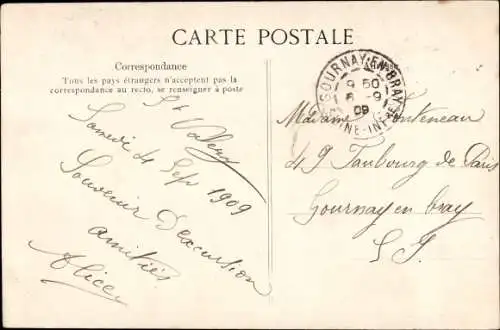 CARTE POSTALE
Correspondance
Tous les pays étrangers n'acceptent pas la
correspondance au recto, se renseigner à poste
St Valery
Samedi 4 Sept 1909
Souvenir D'excursion
amitiés
Alice
GOURNAY-EN-BRAY
9 50
6 -9
09
SEINE-INFRE
Madame
49 Faubourg de Paris
Gournay en bray
S I.